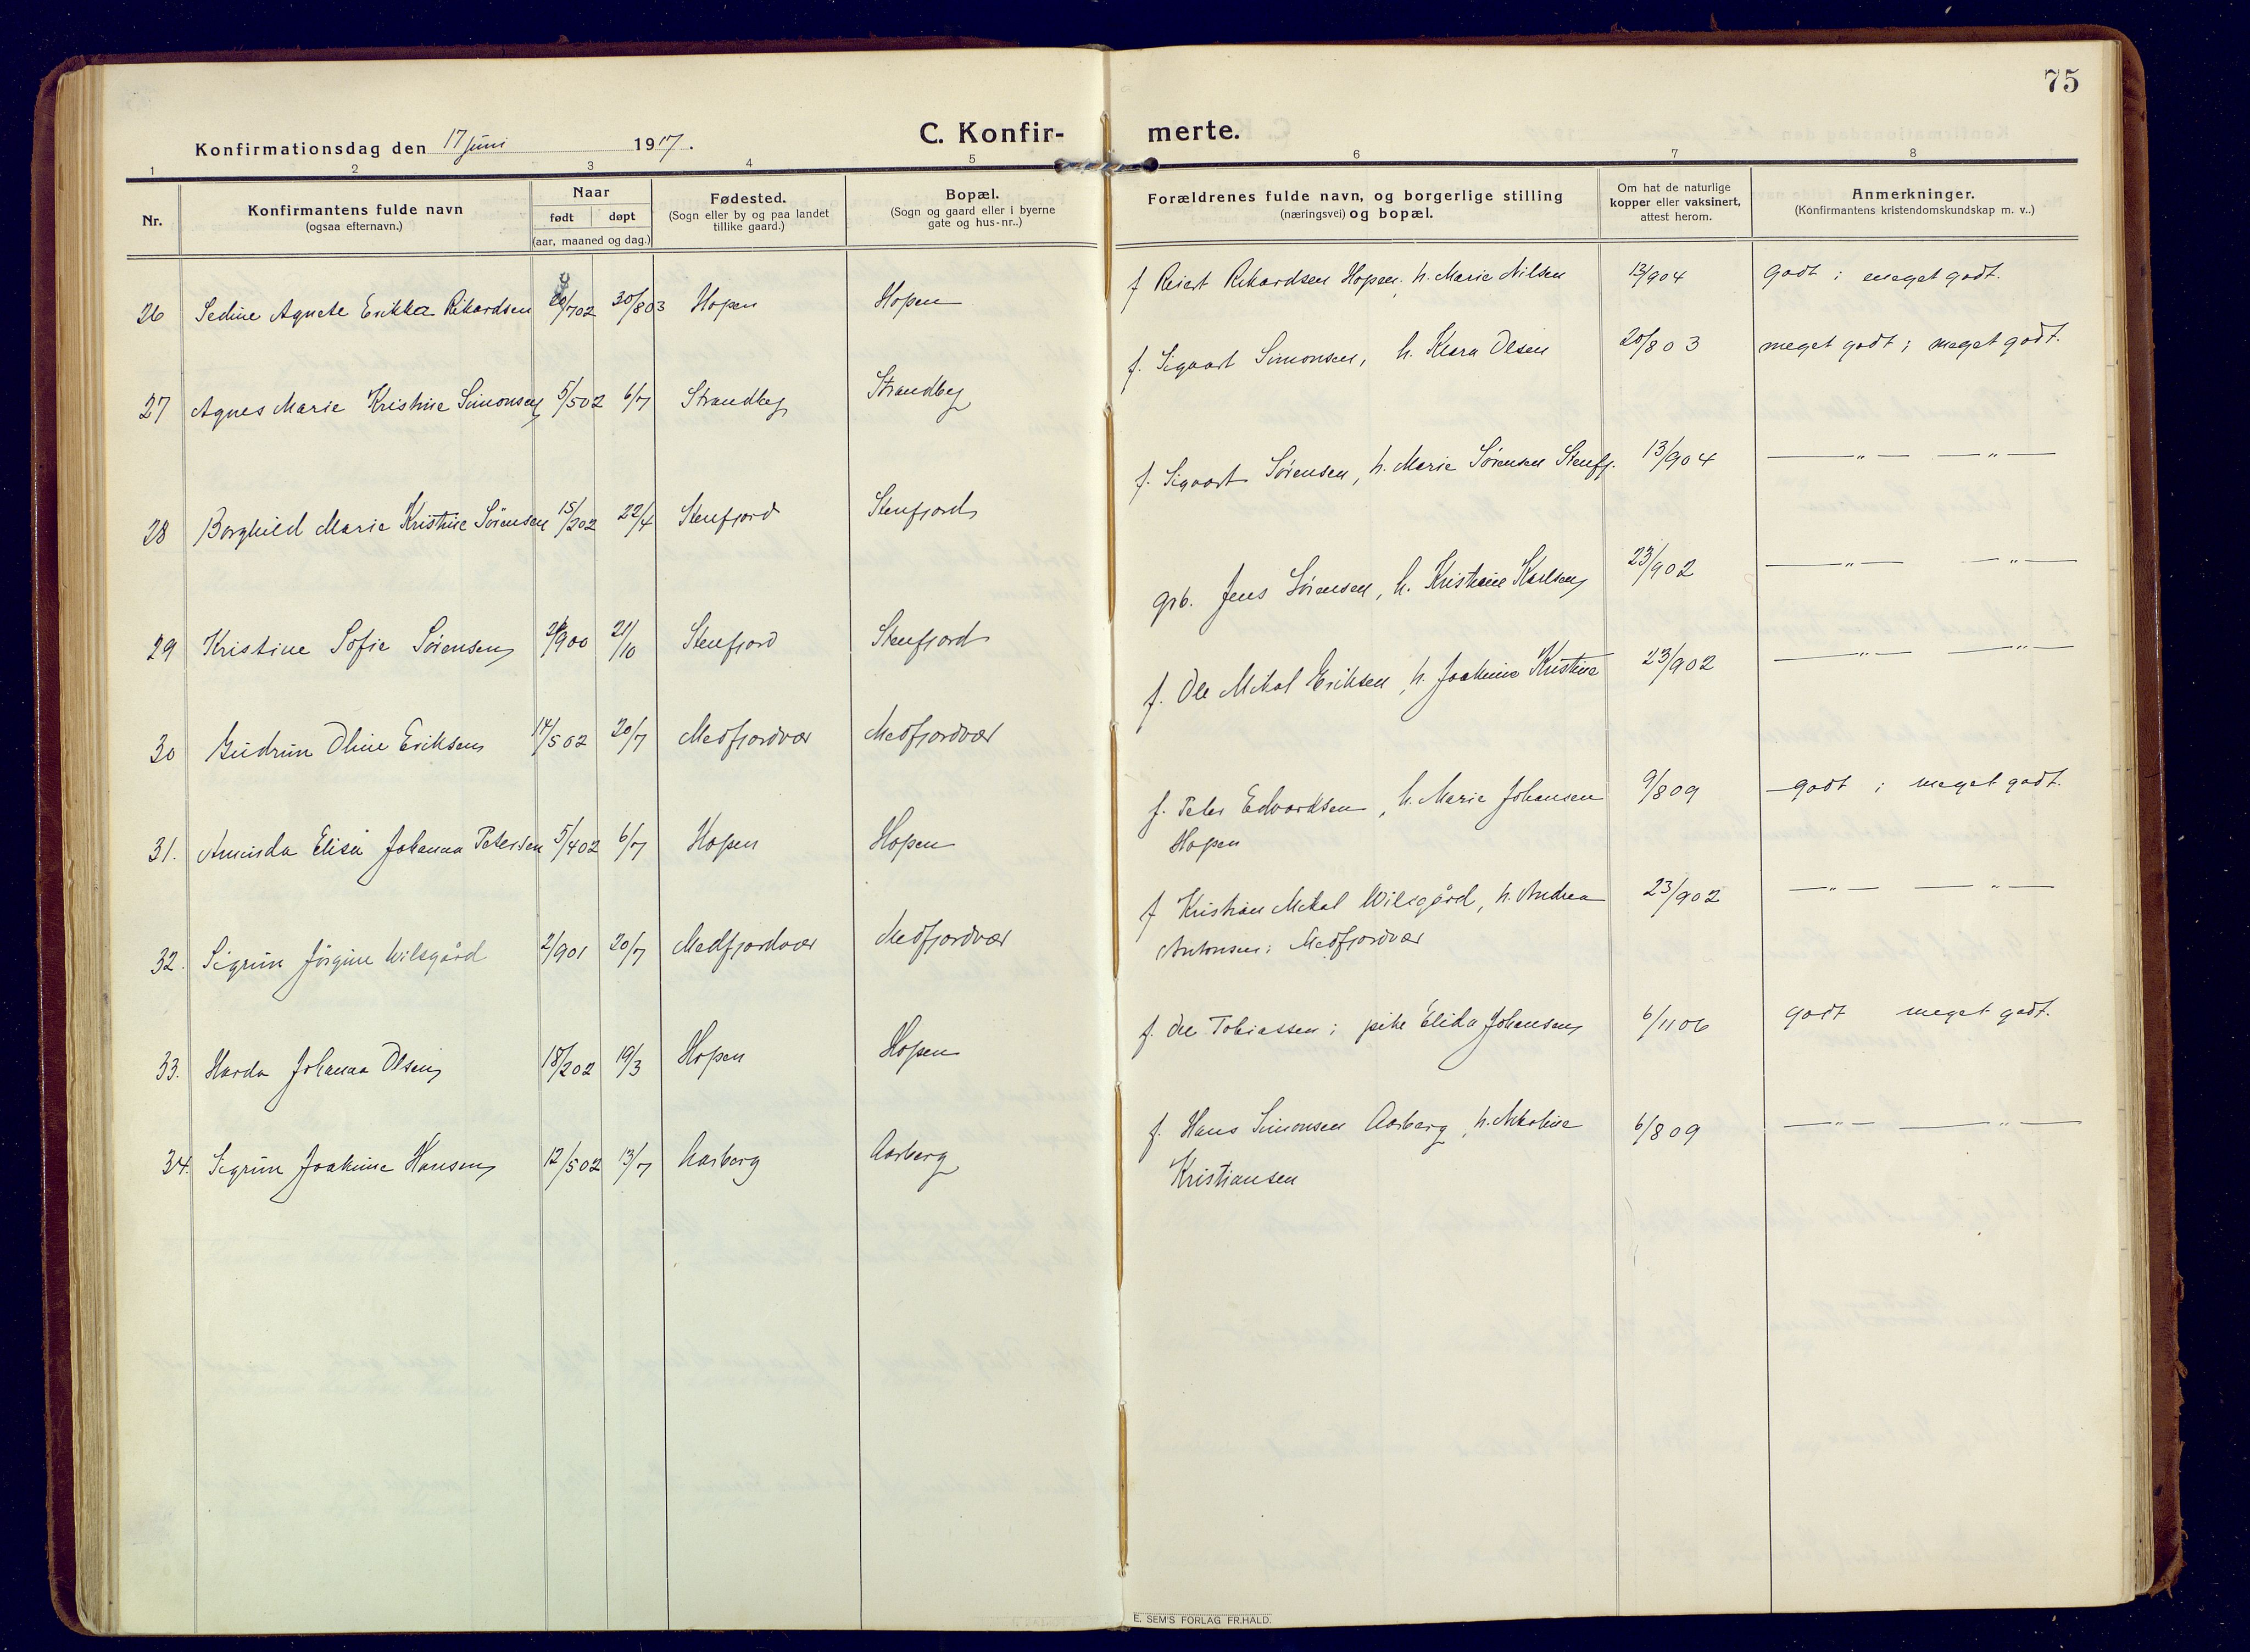 75
C. Konfir- merte.
Konfirmationsdag den 17 juni 1917.
1 2 3 4 5 6 7 8
Nr.
Konfirmantens fulde navn
(ogsaa efternavn.)
Naar
født døpt
(aar, maaned og dag.)
Fødested.
(Sogn eller by og paa landet
tillike gaard.)
Bopæl.
(Sogn og gaard eller i byerne
gate og hus-nr..)
Forældrenes fulde navn, og borgerlige stilling
(næringsvei) og bopæl.
Om hat de naturlige
kopper eller vaksinert,
attest herom.
Anmerkninger.
(Konfirmantens kristendomskundskap m. v..)
26 Sedine Agnete Erikka Rikardsen /702 30/803 Hopen Hopen f Reiert Rikardsen Hopen. h. Marie Nilsen 13/904 godt ; meget godt.
27 Agnes Marie Kristine Simonsen 5/502 6/7 Strandbeg Strandbeg f. Sigvart Simonsen, h. Klara Olsen 20/803 meget godt ; meget godt.
28 Borghild Marie Kristine Sørensen 15/202 22/4 Stenfjord Stenfjord f. Sigvart Sørensen, h. Marie Sørensen Stenfj. 13/904 —„— —„—
29 Kristine Sofie Sørensen /900 21/10 Stenfjord Stenfjord grb. Jens Sørensen, h. Kristine Karlsen 23/902 —„— —„—
30 Gudrun Oline Eriksen 14/502 20/7 Medfjordvær Medfjordvær f. Ole Mikal Eriksen, h. Joakime Kristine 23/902 —„— —„—
31. Aminda Elisa Johanna Petersen 5/402 6/7 Hopen Hopen f. Peter Edvardsen, h. Marie Johansen 9/809 godt ; meget godt.
Hopen
32. Sigrun Jørgine Wilsgård 2/901 20/7 Medfjordvær Medfjordvær f Kristian Mikal Wilsgård, h. Andrea 23/902 —„— —„—
Antonsen; Medfjordvær
33. Harda Johanna Olsen 18/202 19/3 Hopen Hopen f. Ole Tobiassen; pike Elida Johansen 6/1106 godt meget godt.
34. Sigrun Joakime Hansen 12/502 13/7 Aarberg Aarberg f. Hans Simonsen Aarberg, h. Nikoline 6/809 —„— —„—
Kristiansen
E. SEM'S FORLAG FR.HALD.